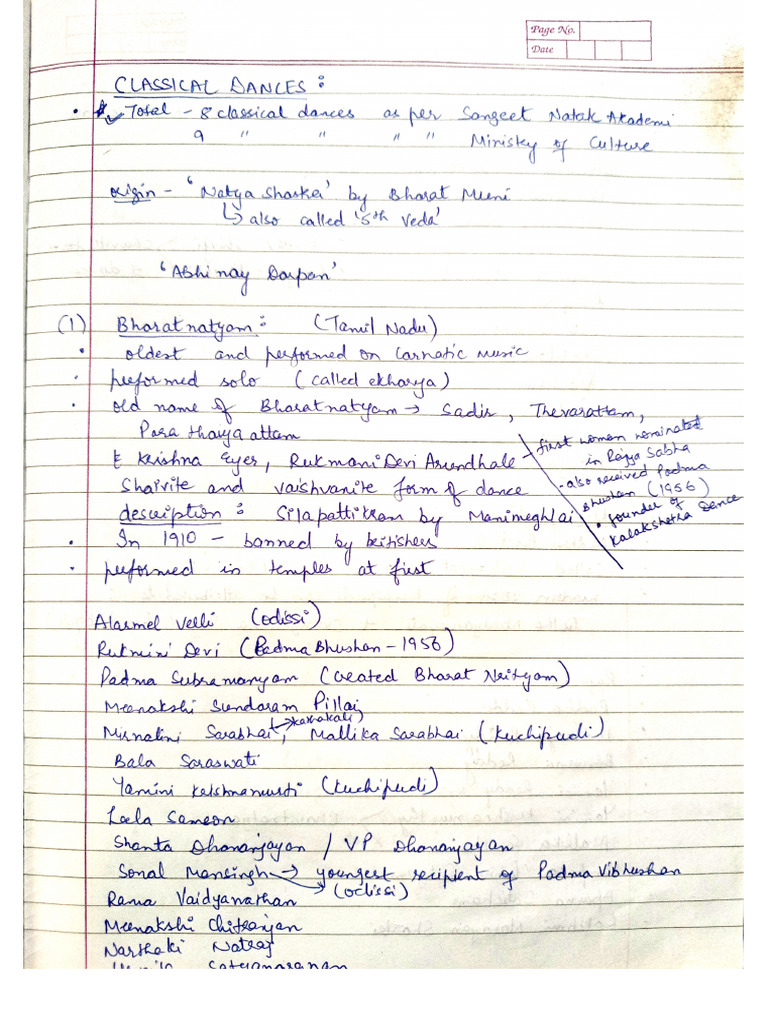 Page No.
Date
CLASSICAL DANCES :
Total - 8 classical dances as per Sangeet Natak Akademi
9 " " " " Ministry of Culture
Origin - 'Natya Shastra' by Bharat Muni
↳ also called '5th Veda'
'Abhinay Darpan'
(1) Bharatnatyam : (Tamil Nadu)
• oldest and performed on Carnatic music
• performed solo (called ekharya)
• old name of Bharatnatyam → Sadir, Thevarattam,
Para tharya attam
E Krishna Eyer, Rukmani Devi Arundhale - first women nominated
in Rajya Sabha
- also received Padma
Bhushan (1956)
• founder of
Kalakshetra Dance
Shaivite and vaishvanite form of dance
description : Silapattikram by Manimeghlai
• In 1910 - banned by britishers
• performed in temples at first
Alarmel Velli (odissi)
Rukmini Devi (Padma Bhushan - 1956)
Padma Subramanyam (created Bharat Nrityam)
Meenakshi Sundaram Pillai
Mirnalini Sarabhai, Mallika Sarabhai (Kuchipudi)
→ kathakali)
Bala Saraswati
Yamini Krishnamurti (Kuchipudi)
Leela Samson
Shanta Dhananjayan / VP Dhananjayan
Sonal Mansingh → youngest recipient of Padma Vibhushan
→ (odissi)
Rama Vaidyanathan
Meenakshi Chitranjan
Narthaki Natraj